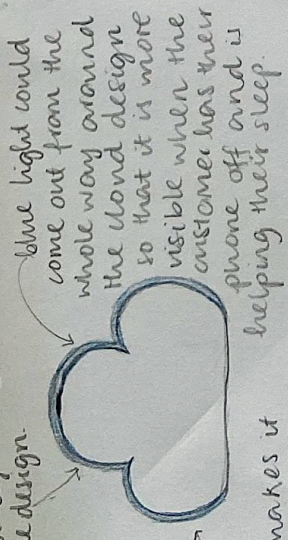 blue light could
come out from the
whole way around
the cloud design
so that it is more
visible when the
customer has their
phone off and is
helping their sleep.
design.
makes it